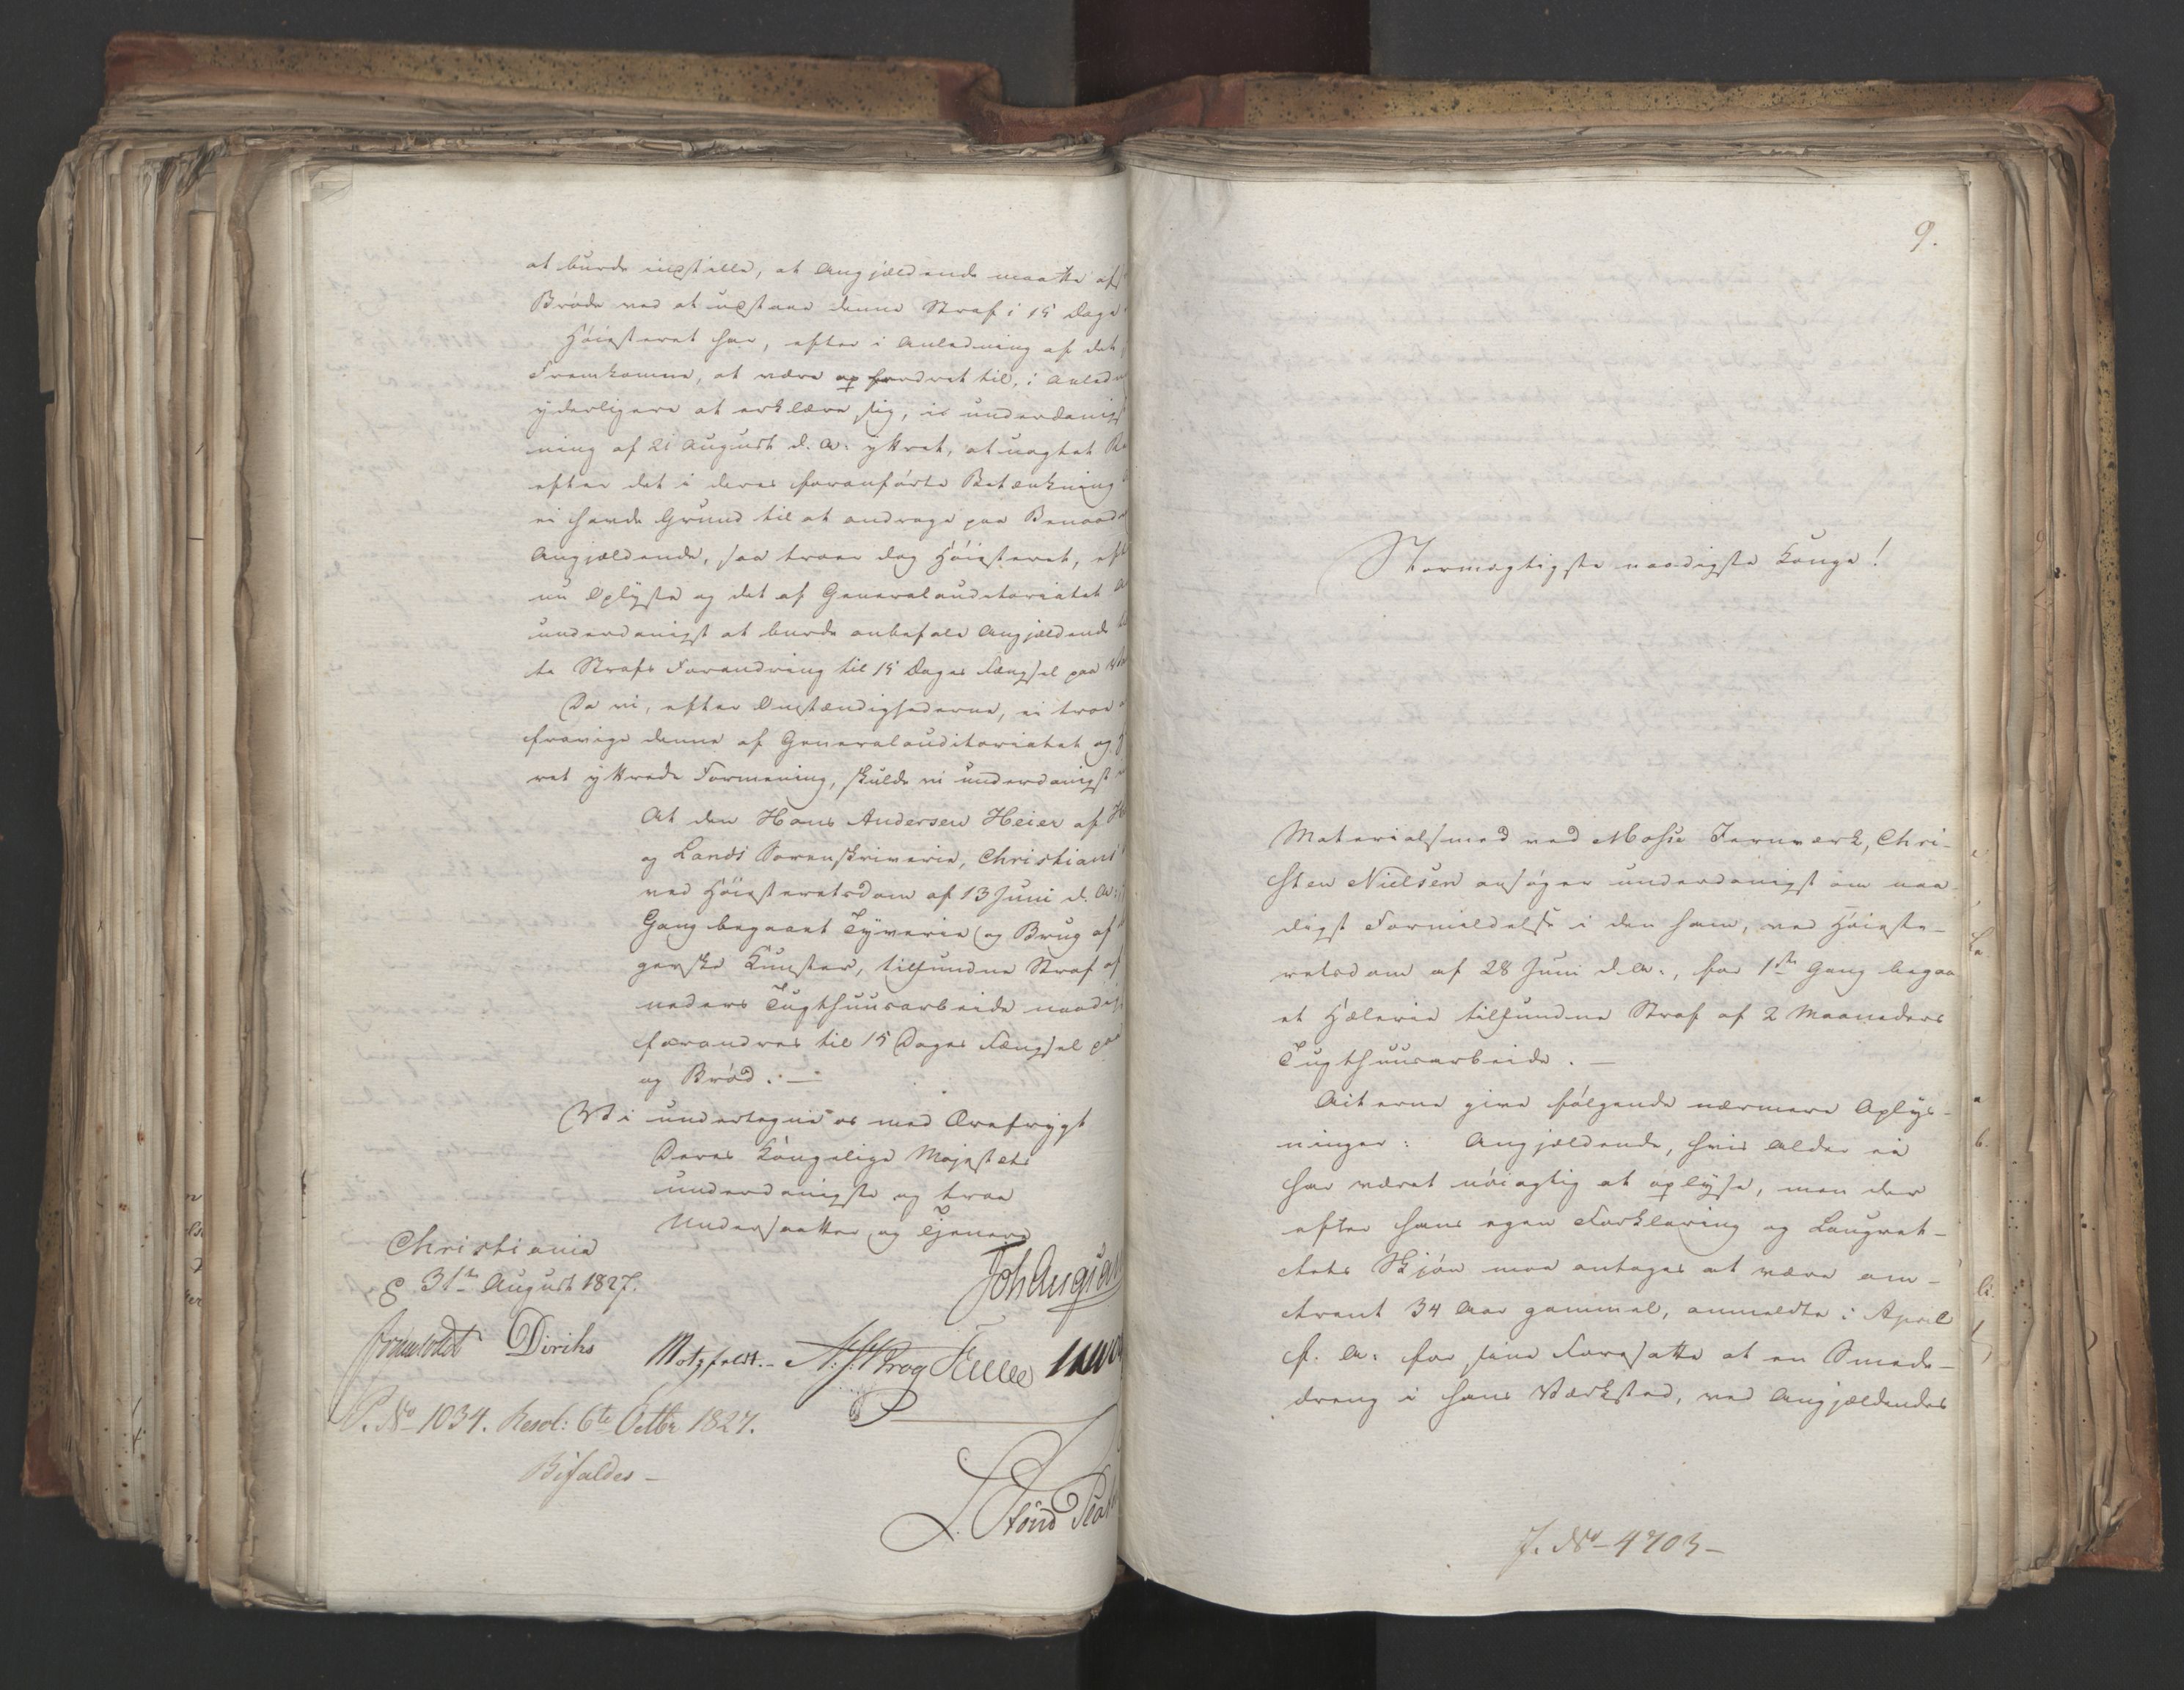 at burde indstille, at Angjældende maatte af
Brøde ved at udstaae denne Straf i 15 Dage
Høiesteret har, efter i Anledning af det
Fremkomne, at være opfordret til, i Anledn
yderligere at erklære sig, i underdanigst
ning af 21 August d. A. yttret, at uagtet Re
efter det i deres foranførte Betænkning
ei havde Grund til at andrage paa Benaad
Angjældende, saa troer dog Høiesteret, eft
nu Oplyste og det af Generalauditoriatet A
underdanigst at burde anbefale Angjældende
te Strafs Forandring til 15 Dages Fængsel paa
Da vi, efter Omstændighederne, ei troe
fravige denne af Generalauditoriatet og
ret yttrede Formening, skulde vi underdanigst
At den Hans Andersen Heier af
og Lands Sorenskriverie, Christians
ved Høiesteretsdom af 13 Juni d. A.
Gang begaaet Tyverie og Brug af
gerske Kunster, tilfundne Straf af
neders Tugthuusarbeide naadigst
forandres til 15 Dages Fængsel paa
og Brød. —
Vi undertegne os med Ærefrygt
Deres Kongelige Majestæts
underdanigste og troe
Undersaatter og Tjenere
Christiania
d. 31te August 1827.
Diriks Motzfeldt. Krog
P. No 1034. Resol: 6te Octbr 1827.
Bifaldes —
9.
Stormægtigste naadigste Konge!
Materialsmed ved Mosse Jernværk, Chri-
sten Nielsen ansøger underdanigst om naa-
digst Formildelse i den ham, ved Høieste-
retsdom af 28 Juni d. A., for 1ste Gang begaa-
et Hælerie tilfundne Straf af 2 Maaneders
Tugthuusarbeide. —
Acterne give følgende nærmere Oplys-
ninger: Angjældende, hvis Alder ei
har været nøiagtig at oplyse, men der
efter hans egen Forklaring og Laugret-
tets Skjøn maa antages at være om-
trent 34 Aar gammel, anmeldte i April
f. A. for sine Foresatte at en Smede-
dreng i hans Værksted, ved Angjældendes
J. No 4703 —